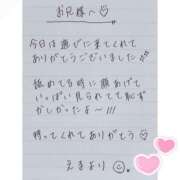 お兄様へ♡
今日は遊びに来てくれて
ありがとうございました
舐めてる時に顔あげて
いっぱい見られてて恥ず
かしかったよ〜!!!
待っててくれてありがとう♡
より☺